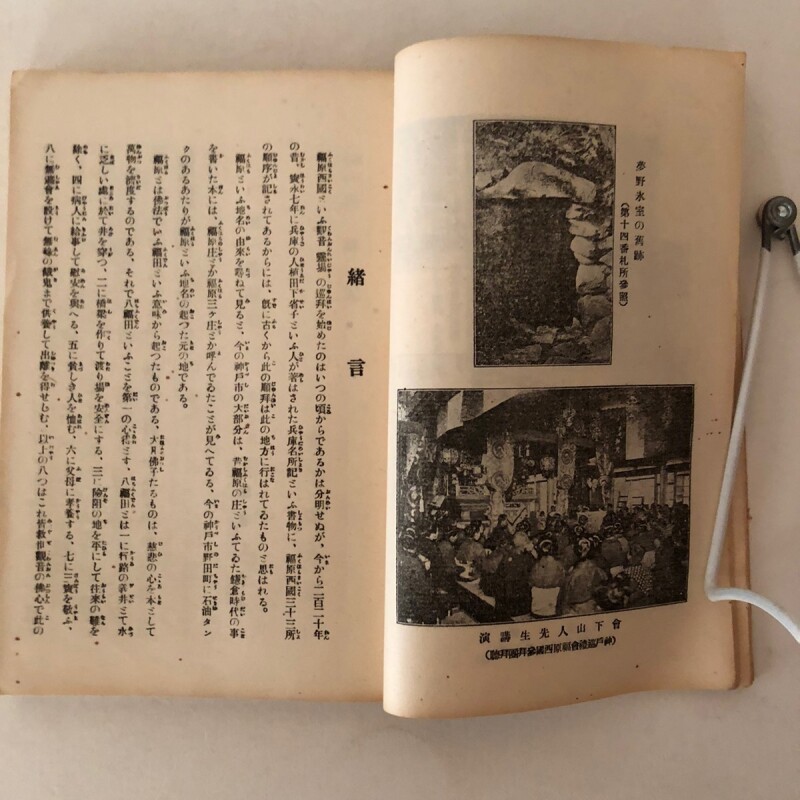 夢野氷室の舊跡
(第十四番札所參照)
會下山人先生講演
(神戸巡禮會福原西國參拜團拜聽)
緒言
福原西國といふ觀音靈場の巡拜を始めたのはいつの頃からであるかは分明せぬが、今から二百二十年
の昔、寳永七年に兵庫の人植田下省子といふ人が著はされた兵庫名所記といふ書物に、福原西國三十三所
の順序が記されてあるからには、既に古くから此の順拜は此の地方に行はれてゐたものと思はれる。
福原といふ地名の由來を尋ねて見ると、今の神戸市の大部分は、昔福原の庄といふてゐた鎌倉時代の事
を書いた本には、福原庄とか福原三ケ庄とか呼んでゐたことが見へてゐる、今の神戸市野田町に石油タン
クのあるあたりが福原といふ地名の起つた元の地である。
福原とは佛法でいふ福田といふ意味から起つたものである、大凡佛子たるものは、慈悲の心を本として
萬物を濟度するのである、それで八福田といふことを第一の心得とす、八福田とは一に行路の義井とて水
に乏しい處に於て井を穿つ、二に橋梁を作りて渡り場を安全にする、三に險阻の地を平にして往來の難を
除く、四に病人に給事して慰安を與へる、五に貧しき人を恤む、六に父母に孝養する、七に三寳を敬ふ、
八に無遮會を設けて無縁の餓鬼まで供養して出離を得せしむ、以上の八つはこれ皆救世觀音の佛心で此の